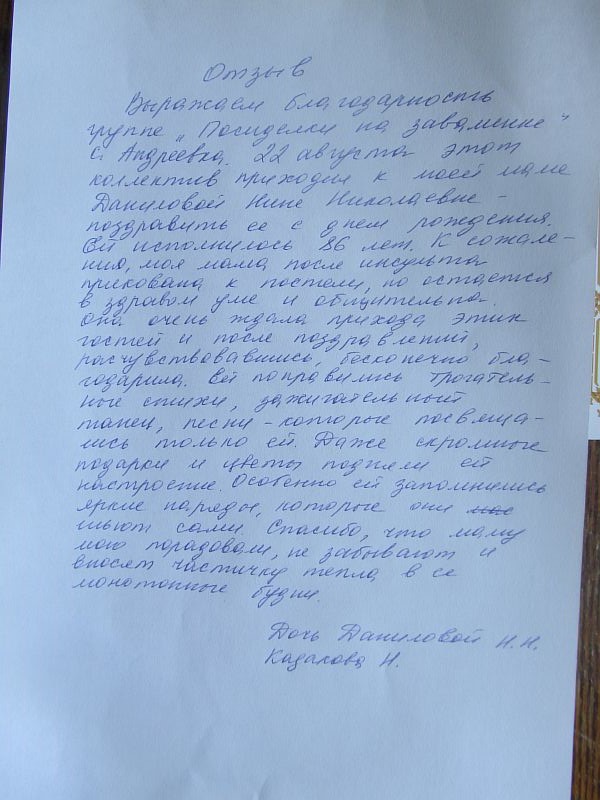 Отзыв
Выражаем благодарность
группе „Посиделки на завалинке"
с. Андреевка. 22 августа этот
коллектив приходил к моей маме
Даниловой Нине Николаевне –
поздравить ее с днем рождения.
Ей исполнилось 86 лет. К сожале-
нию, моя мама после инсульта
прикована к постели, но остается
в здравом уме и общительна.
Она очень ждала прихода этих
гостей и после поздравлений,
расчувствовавшись, бесконечно бла-
годарила. Ей понравились трогатель-
ные стихи, зажигательный
танец, песни – которые посвяща-
лись только ей. Даже скромные
подарки и цветы подняли ей
настроение. Особенно ей запомнились
яркие наряды, которые они
шьют сами. Спасибо, что маму
мою порадовали, не забывают и
вносят частичку тепла в ее
монотонные будни.
Дочь Даниловой Н.Н.
Казакова Н.